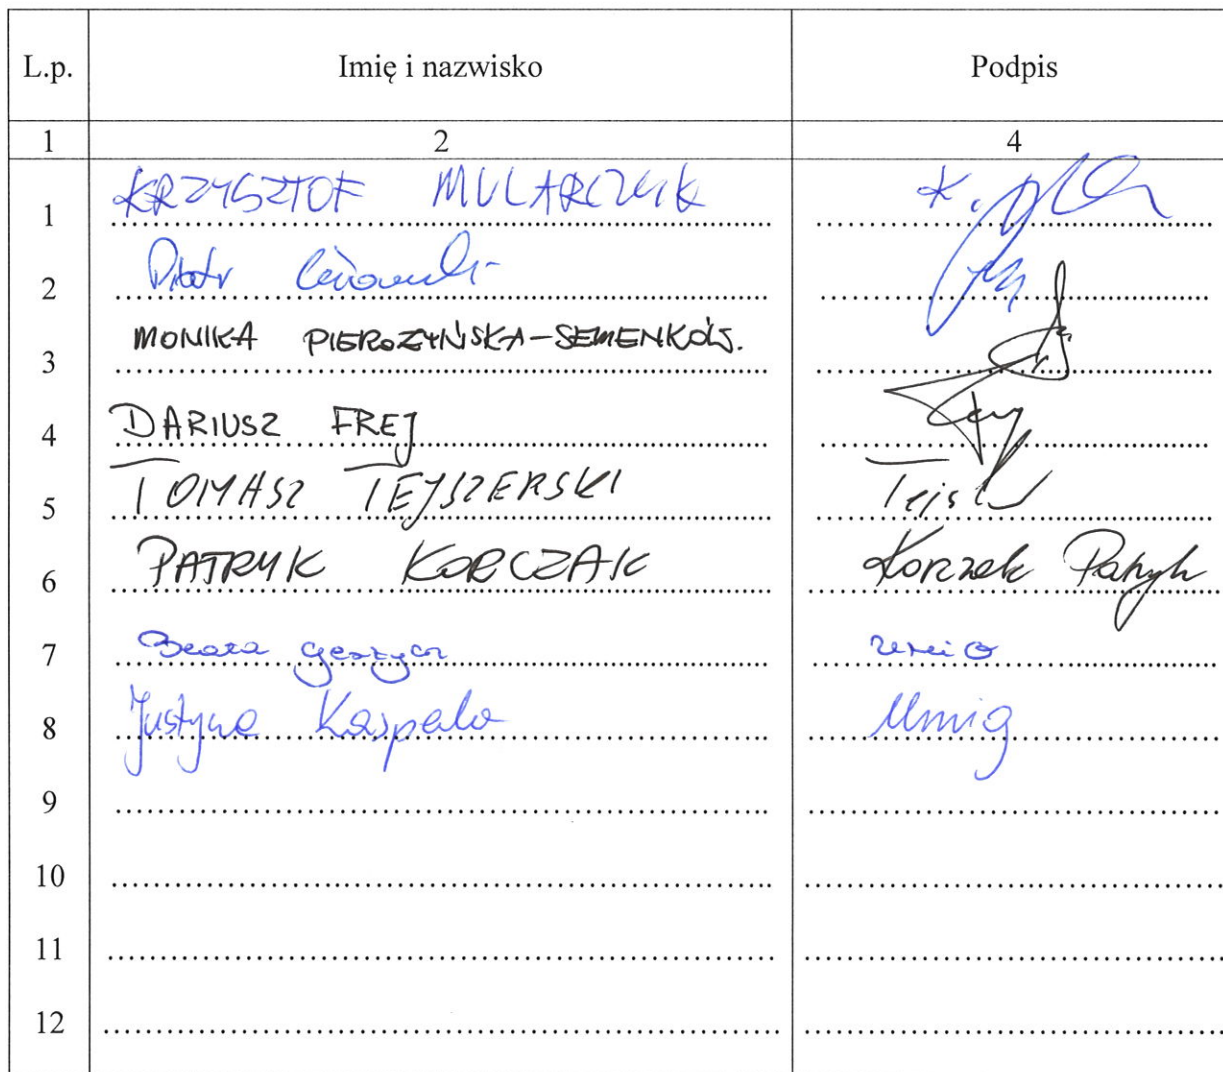 L.p. Imię i nazwisko Podpis
1 2 4
1 KRZYSZTOF MULARCZYK K.
2 Piotr
3 MONIKA PIEROŻYŃSKA-SEMENKÓW.
4 DARIUSZ FREJ
5 TOMASZ TEJSZERSKI
6 PATRYK KORCZAK Korczak Patryk
7 Beata
8 Justyna Kaspala
9
10
11
12